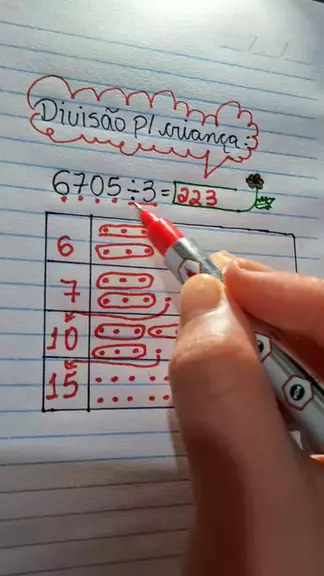 Divisão p/ criança:
6705÷3=223
6
7
10
15